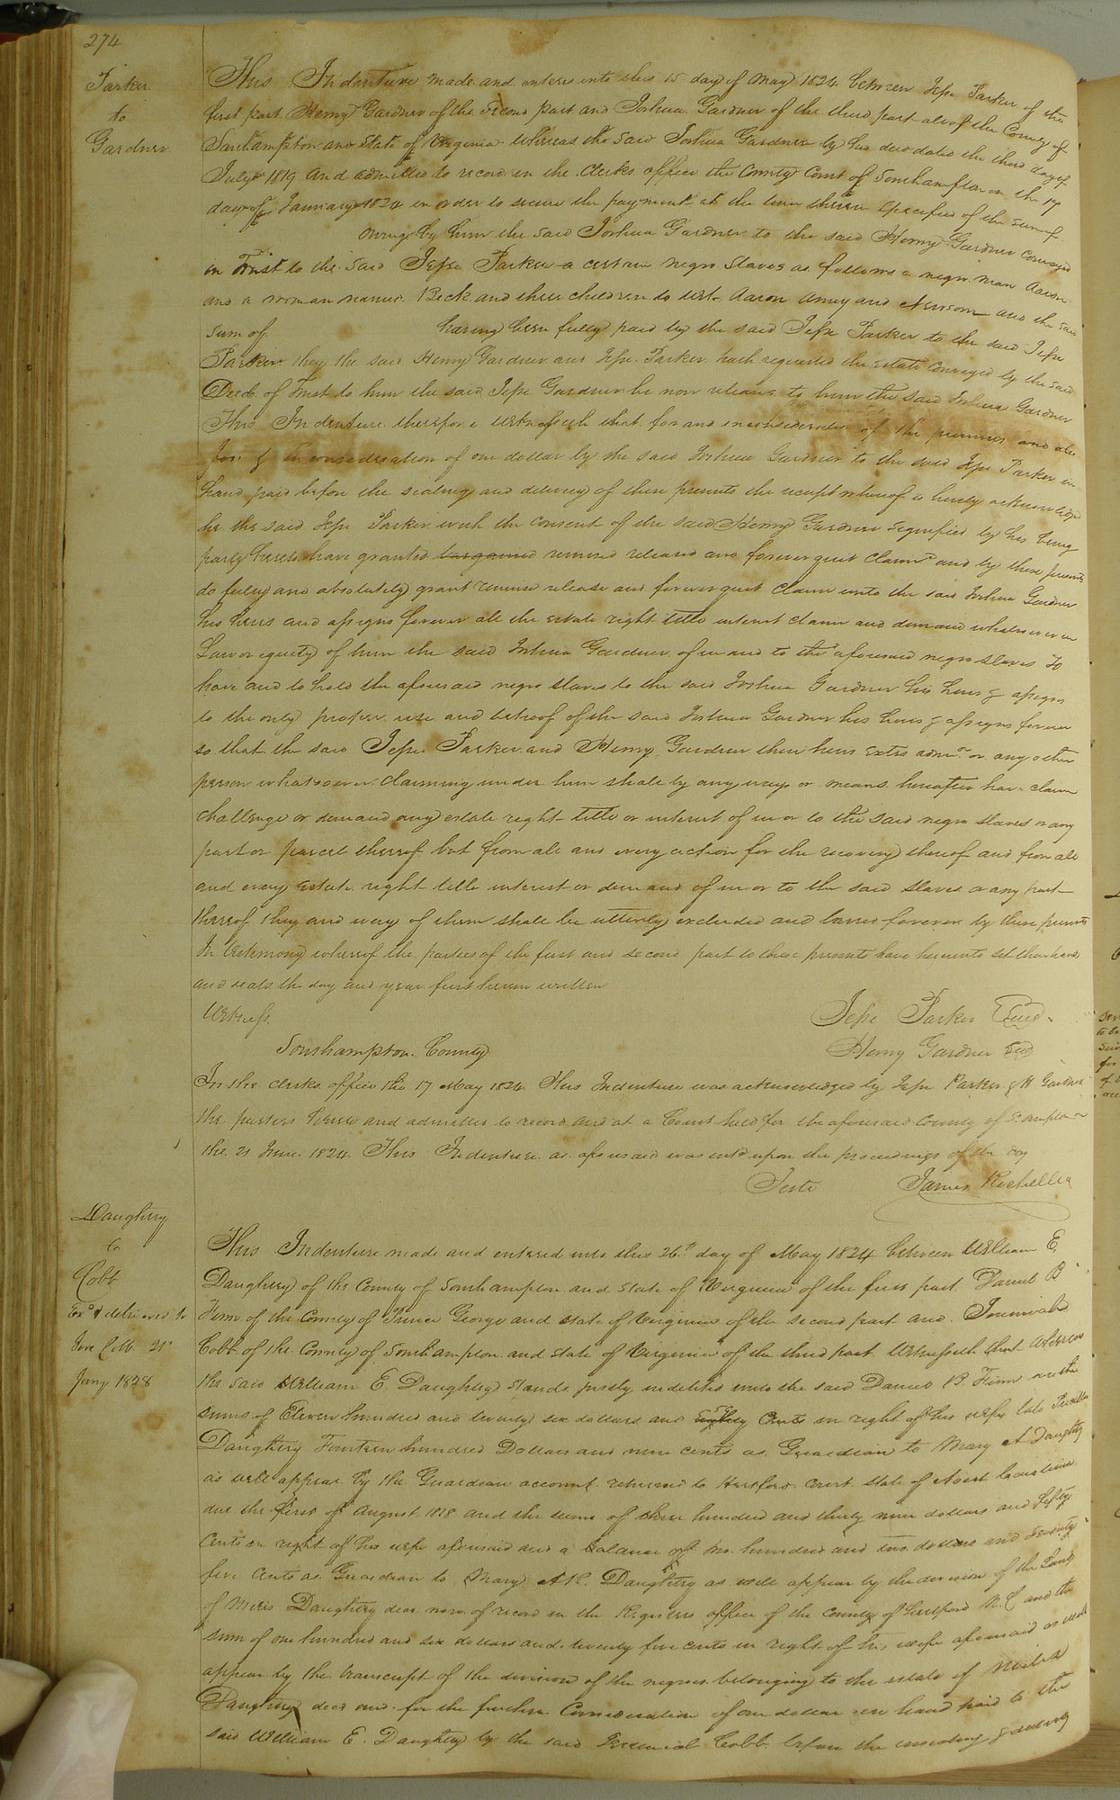 274
Parker
to
Gardner
This Indenture made and enterd into this 15 day of May 1824 between Jesse Parker of the
first part Henry Gardner of the second part and Joshua Gardner of the third part all of the County of
Southampton and State of Virginia whereas the said Joshua Gardner by his deed dated the third day of
July 1819 and admitted to record in the Clerks office the County Court of Southampton on the 17
day of January 1820 in order to secure the payment at the time therein specified of the sum of
owing by him the said Joshua Gardner to the said Henry Gardner conveyed
in Trust to the said Jesse Parker a certain negro Slaves as follows a negro man Aaron
and a woman named Beck and three children to wit Aaron Amey and and the said
sum of having been fully paid by the said Jesse Parker to the said Jesse
Parker they the said Henry Gardner and Jesse Parker hath requested the estate conveyed by the said
Deed of Trust to him the said Jesse Gardner be now released to him the said Joshua Gardner
This Indenture therefore witnesseth that for and in consideration of the premises and also
for & in consideration of one dollar by the said Joshua Gardner to the said Jesse Parker in
hand paid before the sealing and delivery of these presents the receipt whereof is hereby acknowledge
he the said Jesse Parker with the consent of the said Henry Gardner signified by his being
party hereto have granted bargained remised released and forever quit claimd and by these presents
do fully and absolutely grant remise release and forever quit claim unto the said Joshua Gardner
his heirs and assigns forever all the estate right title interest claim and demand whatsoever in
Law or equity of him the said Joshua Gardner of in and to the aforesaid negro slaves To
have and to hold the aforesaid negro slaves to the said Joshua Gardner his heirs & assigns
to the only proper use and behoof of the said Joshua Gardner his heirs & assigns forever
so that the said Jesse Parker and Henry Gardner their heirs Extrs admrs or any other
person whatsoever claiming under him shall by any ways or means hereafter have claim
challenge or demand any estate right title or interest of in or to the said negro slaves or any
part or parcel thereof but from all and every action for the recovery thereof and from all
and every estate right title interest or demand of in or to the said slaves or any part
thereof they and every of them shall be utterly excluded and barred forever by these presents
In testimony whereof the parties of the first and second part to these presents have hereunto set their hands
and seals the day and year first herein written
Witness Jesse Parker Seal
Southampton County Henry Gardner Seal
In the clerks office the 17 May 1824 This Indenture was acknowledged by Jesse Parker & H Gardner
the parties hereto and admitted to record and at a Court held for the aforesaid County of S.ampton
the 21 June 1824 This Indenture as aforesaid was entd upon the proceedings of the day
Teste James Rochelle
Daughtry
to
Cobb
Exd & delivered to
Jere Cobb 21st
Jany 1828
This Indenture made and entered into this 26th day of May 1824 between William E.
Daughtry of the County of Southampton and State of Virginia of the first part Daniel B
of the County of Prince George and state of Virginia of the second part and Jeremiah
Cobb of the County of Southampton and State of Virginia of the third part Witnesseth that whereas
the said William E Daughtry stands justly indebted unto the said Daniel B. in the
sum of Eleven hundred and twenty six dollars and Cents in right of his wife late
Daughtry Fourteen hundred Dollars and nine cents as Guardian to Mary A Daughtry
as will appear by the Guardian account returned to Hertford Court State of North Carolina
due the first of August 1818 and the sum of three hundred and thirty nine dollars and fifty
Cents in right of his wife aforesaid and a balance of one hundred and two dollars and seventy
five Cents as Guardian to Mary A R. Daughtry as will appear by the division of the Land
of Miles Daughtry decd now of record in the Registers office of the County of Hertford N.C and the
sum of one hundred and six dollars and twenty five cents in right of his wife aforesaid as will
appear by the transcript of the division of the negroes belonging to the estate of Miles
Daughtry decd and for the further Consideration of one dollar in hand paid to the
said William E. Daughtry by the said Jeremiah Cobb before the ensealing & delivery